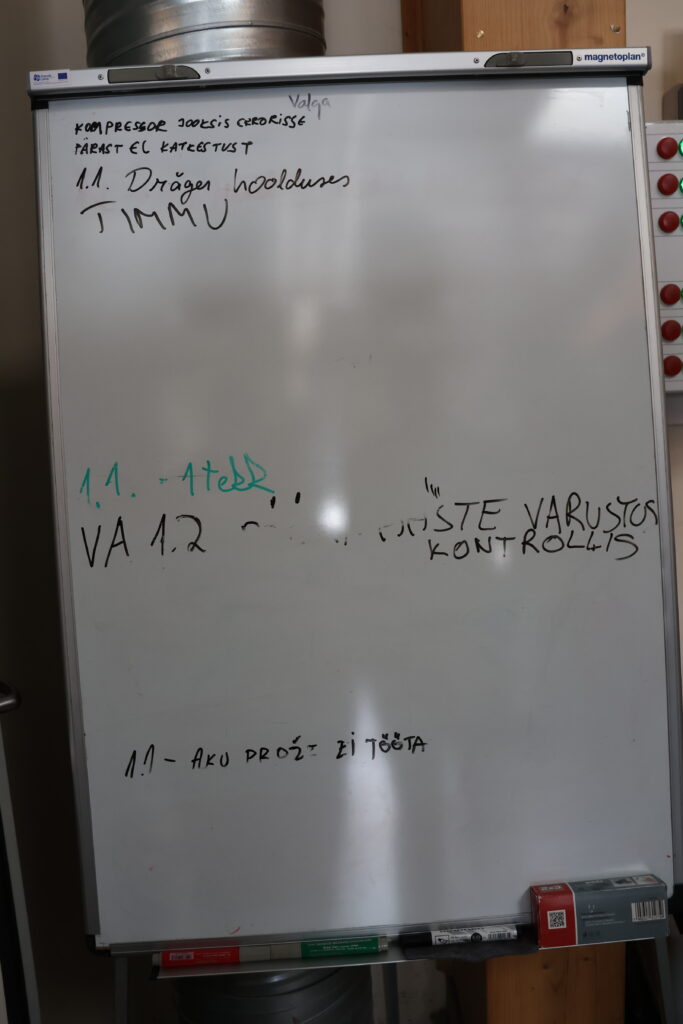 magnetoplan®
Valga
KOMPRESSOR JOOKSIS ERRORISSE
PÄRAST EL KATKESTUST
1.1. Dräger hoolduses
TIMMU
1.1. - 1 tekk
VA 1.2
STE VARUSTUS
KONTROLLIS
1.1 - AKU PROŽ. EI TÖÖTA